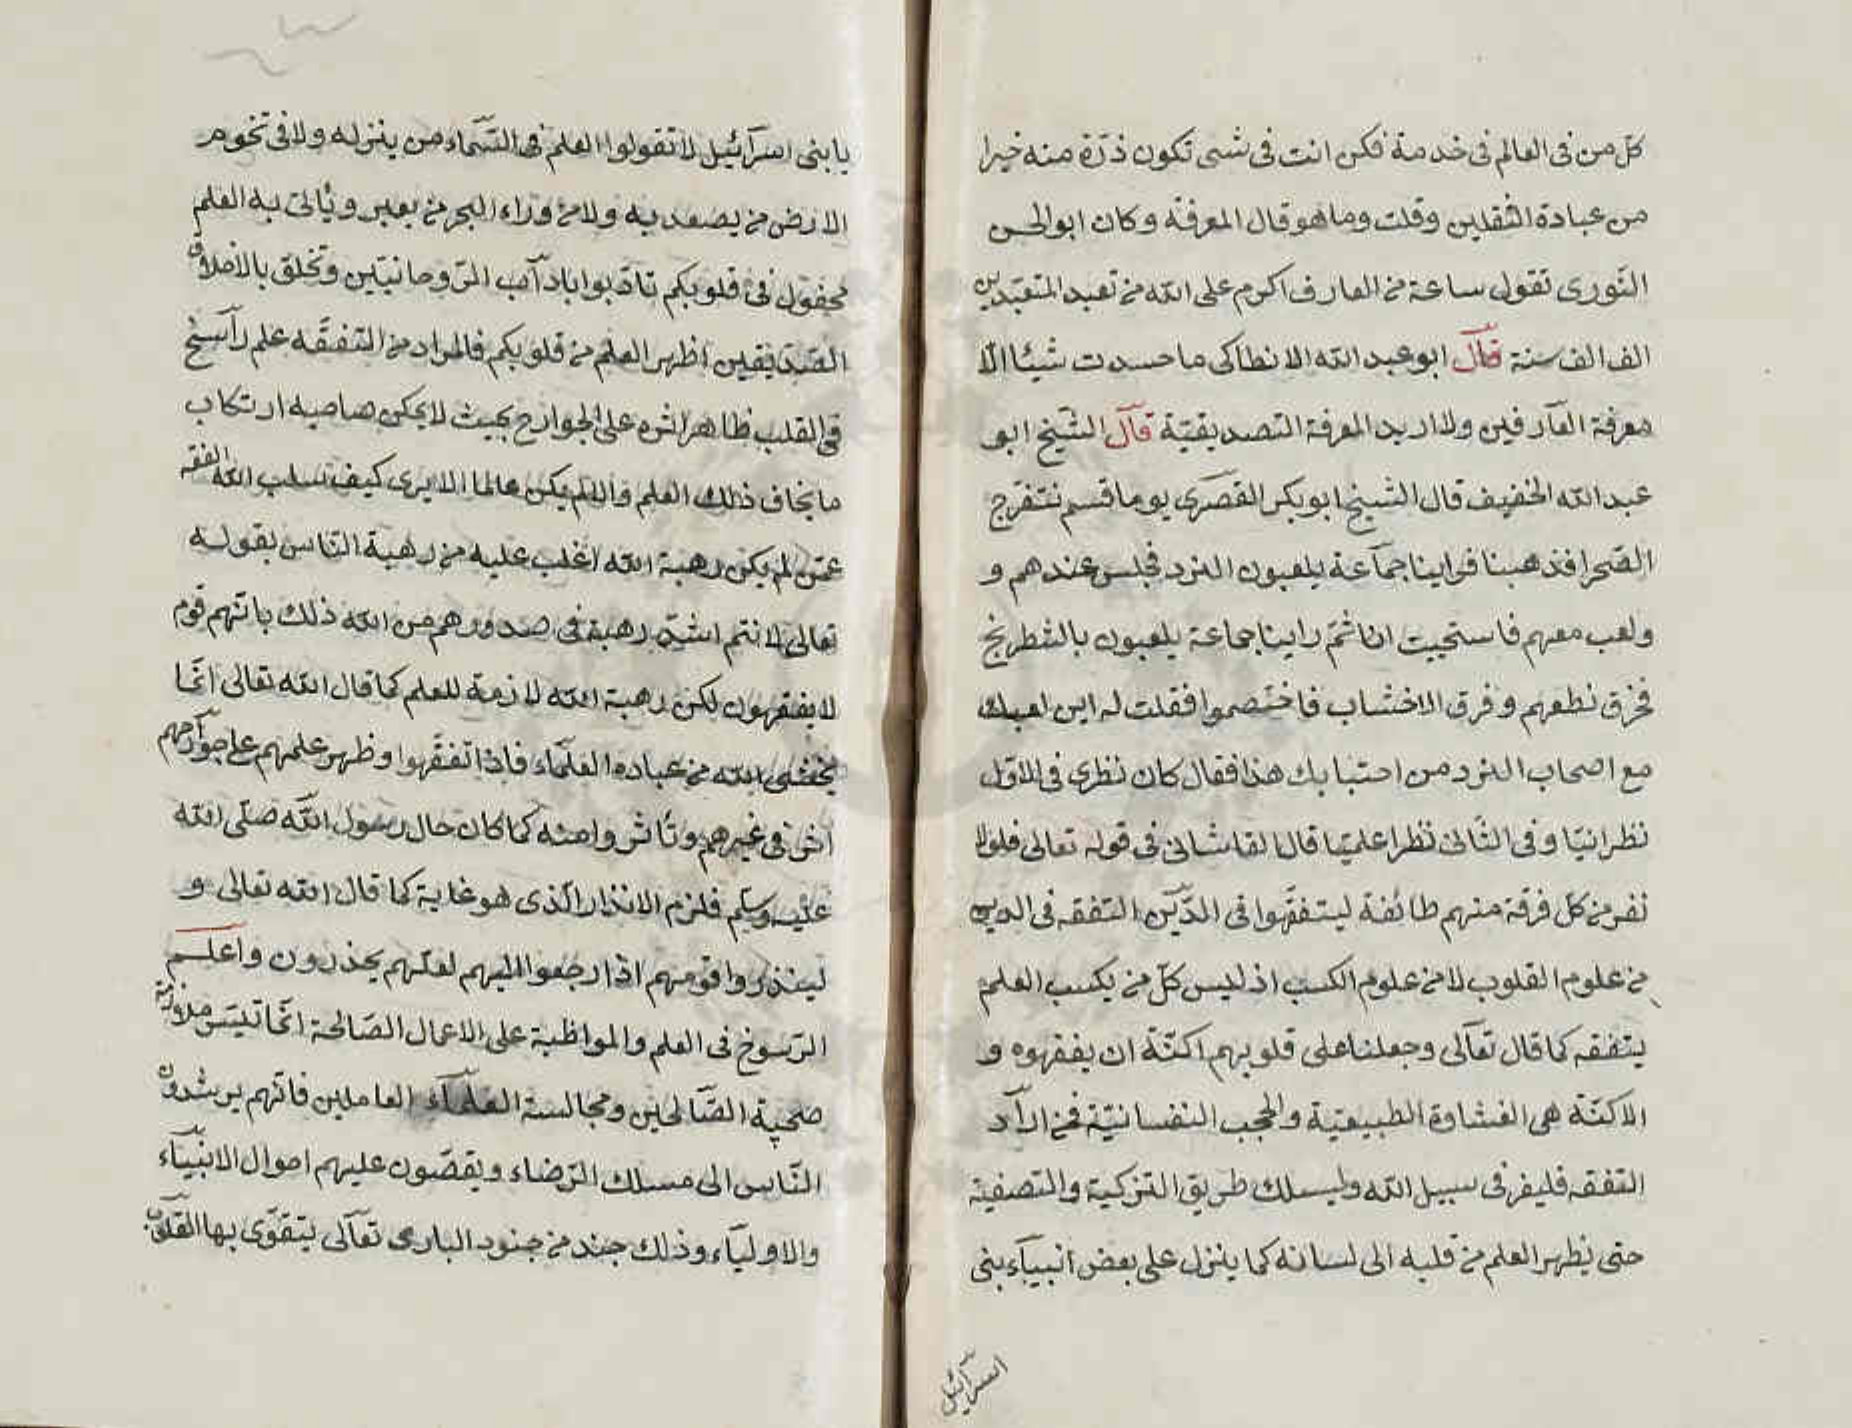 كلّ من فى العالم فى خدمة فكن انت فى شئ تكون ذرّة منه خيرا
من عبادة الثقلين وقلت وما هو قال المعرفة وكان ابو الحسن
النّورى تقول ساعة من العارف اكرم على الله من تعبد المتعبّدين
الف الف سنة قال ابو عبد الله الانطاكى ما حسدت شيئا الّا
معرفة العارفين ولا اريد المعرفة التصديقيّة قال الشّيخ ابو
عبد الله الخفيف قال الشيخ ابو بكر القصرى يوما قسم نتفرّج
الصّحرا فذهبنا فراينا جماعة يلعبون النرد فجلس عندهم و
ولعب معهم فاستحييت انا ثمّ راينا جماعة يلعبون بالشطرنج
فخرق نطعهم وفرق الاخشاب فاختصموا فقلت له اين لعبك
مع اصحاب النرد من احتسابك هذا فقال كان نظرى فى الاوّل
نظرا نيّا وفى الثّانى نظرا علميّا قال القاشانى فى قوله تعالى فلولا
نفر من كل فرقة منهم طائفة ليتفقّهوا فى الدّين التفقه فى الدين
من علوم القلوب لا من علوم الكسب اذ ليس كلّ من يكسب العلم
يتفقه كما قال تعالى وجعلنا على قلوبهم اكنّة ان يفقهوه و
الاكنّة هى الغشاوة الطبيعيّة والحجب النفسانيّة فمن اراد
التفقه فليفر فى سبيل الله وليسلك طريق التزكية والتصفية
حتى يظهر العلم من قلبه الى لسانه كما ينزل على بعض انبياء بنى
اسرائيل
يا بنى اسرائيل لا تقولوا العلم فى السّماء من ينزله ولا فى تخوم
الارض من يصعد به ولا من وراء البحر من يعبر ويأتى به العلم
مجعول فى قلوبكم تادّبوا باداب الرّوحانيّين وتخلق بالاخلاق
الصّديقين اظهر العلم من قلوبكم فالمراد من التفقّه علم راسخ
فى القلب ظاهر اثره على الجوارح بحيث لا يمكن صاحبه ارتكاب
ما يخاف ذلك العلم والا لم يكن عالما الا يرى كيف سلب الله الفقه
عمّن لم يكن رهبة الله اغلب عليه من رهبة النّاس بقوله
تعالى لانتم اشدّ رهبة فى صدورهم من الله ذلك بانّهم قوم
لا يفقهون لكن رهبة الله لازمة للعلم كما قال الله تعالى انّما
يخشى الله من عباده العلماء فاذا تفقّهوا وظهر علمهم على جوارحهم
اثر فى غيرهم وتاثروا منه كما كان حال رسول الله صلّى الله
عليه وسلّم فلزم الانذار الّذى هو غاية كما قال الله تعالى و
لينذروا قومهم اذا رجعوا اليهم لعلّهم يحذرون واعلم
الرّسوخ فى العلم والمواظبة على الاعمال الصّالحة انّما تيسّر
صحبة الصّالحين ومجالسة العلماء العاملين فانّهم يرشدون
النّاس الى مسلك الرّضاء ويقصّون عليهم احوال الانبياء
والاولياء وذلك جند من جنود البارى تعالى يتقوّى بها القلوب